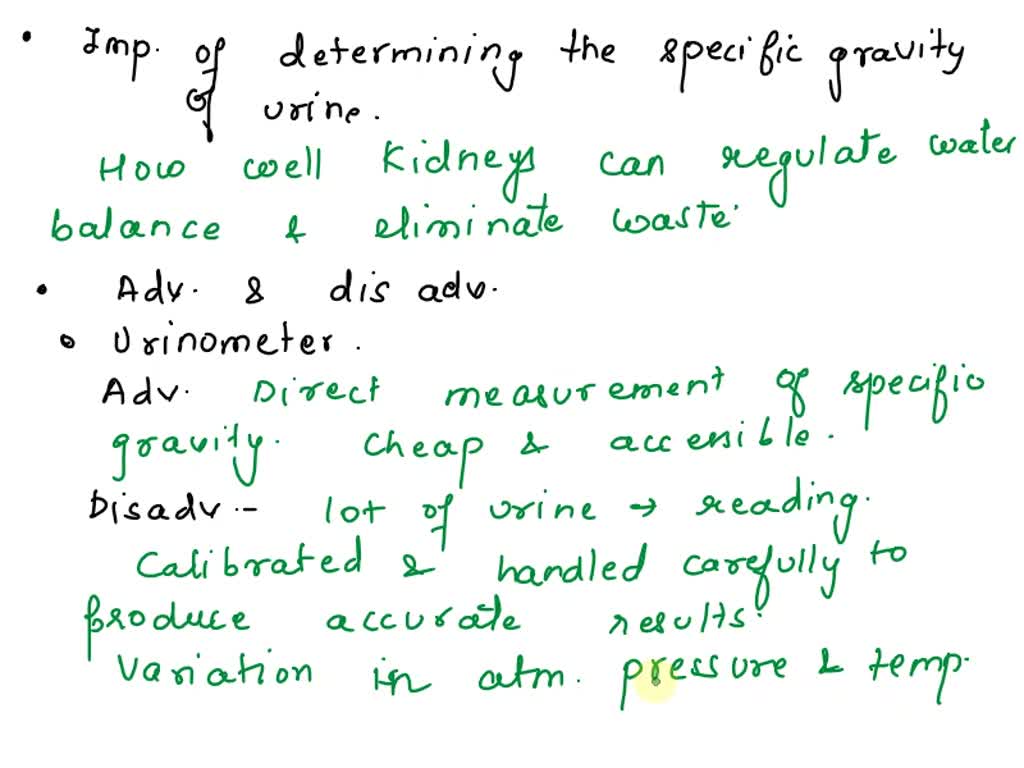 • Imp. of determining the specific gravity
of urine.
How well Kidneys can regulate water
balance & eliminate waste.
• Adv. & dis adv.
• Urinometer.
Adv. Direct measurement of specific
gravity. Cheap & accesible.
Disadv :- lot of urine → reading.
Calibrated & handled carefully to
produce accurate results.
Variation in atm. pressure & temp.